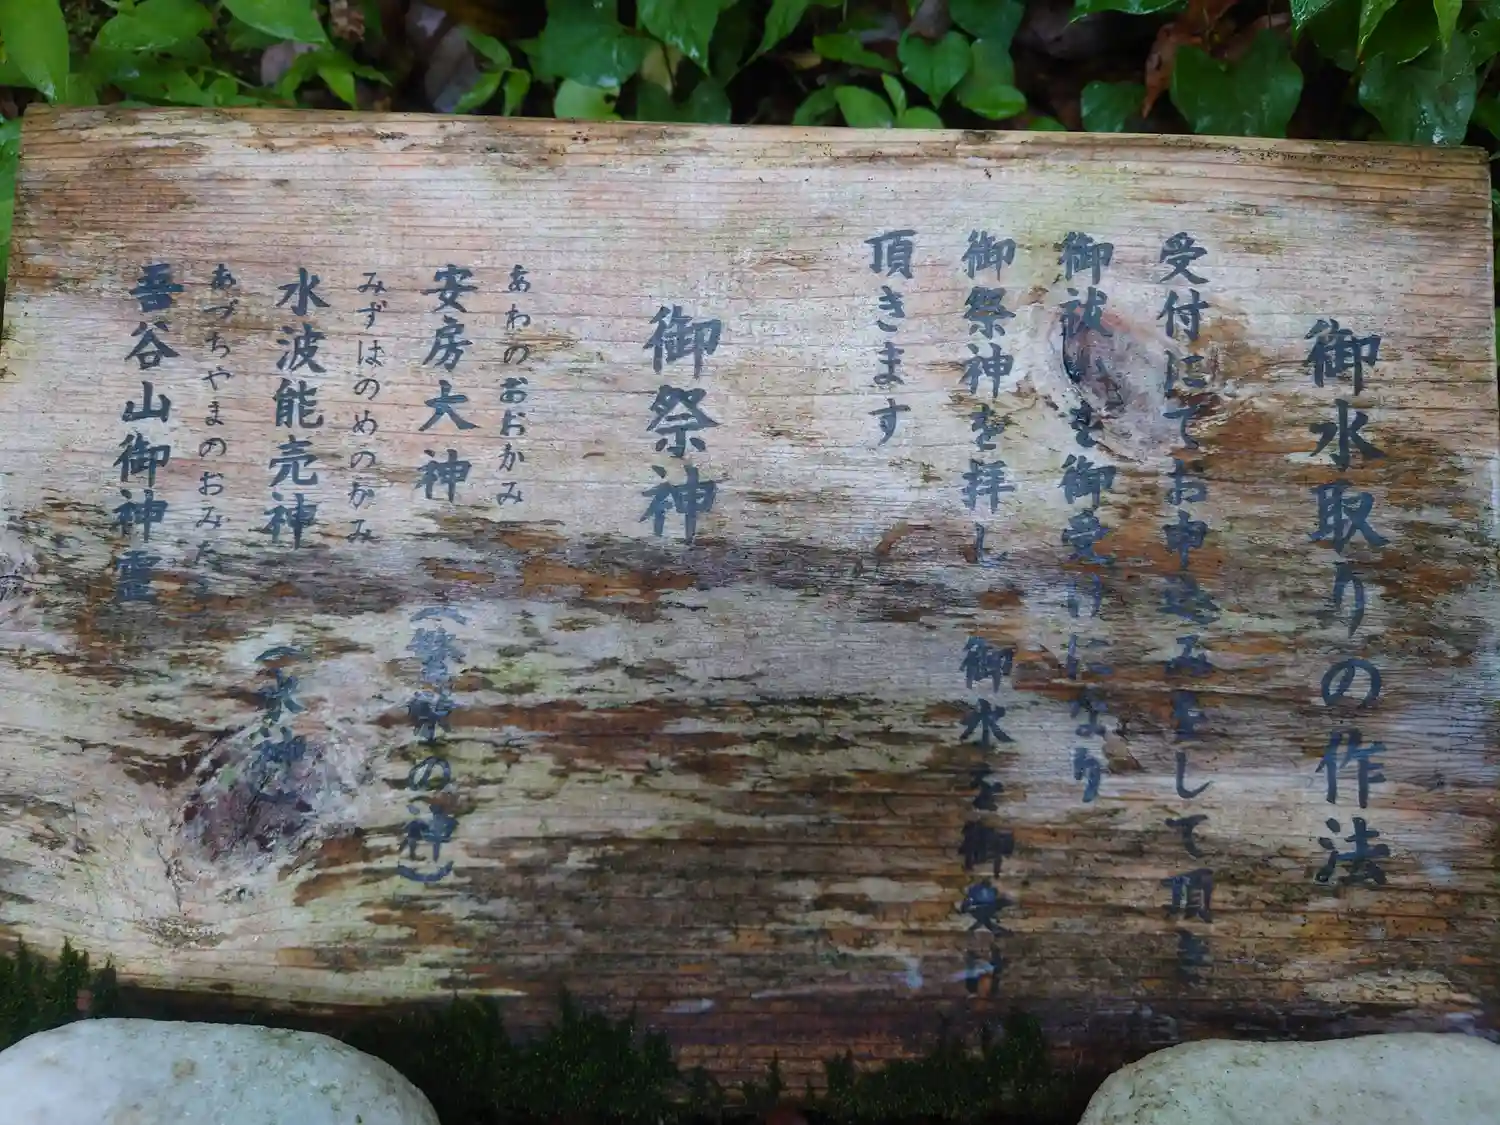 御水取りの作法
受付にてお申込みをして頂き
御祓いを御受けになり
御祭神を拝し 御水を御受け
頂きます
御祭神
あわのおおかみ
安房大神 (繁栄の神)
みずはのめのかみ
水波能売神 (水神)
あづちやまのおみた
吾谷山御神霊